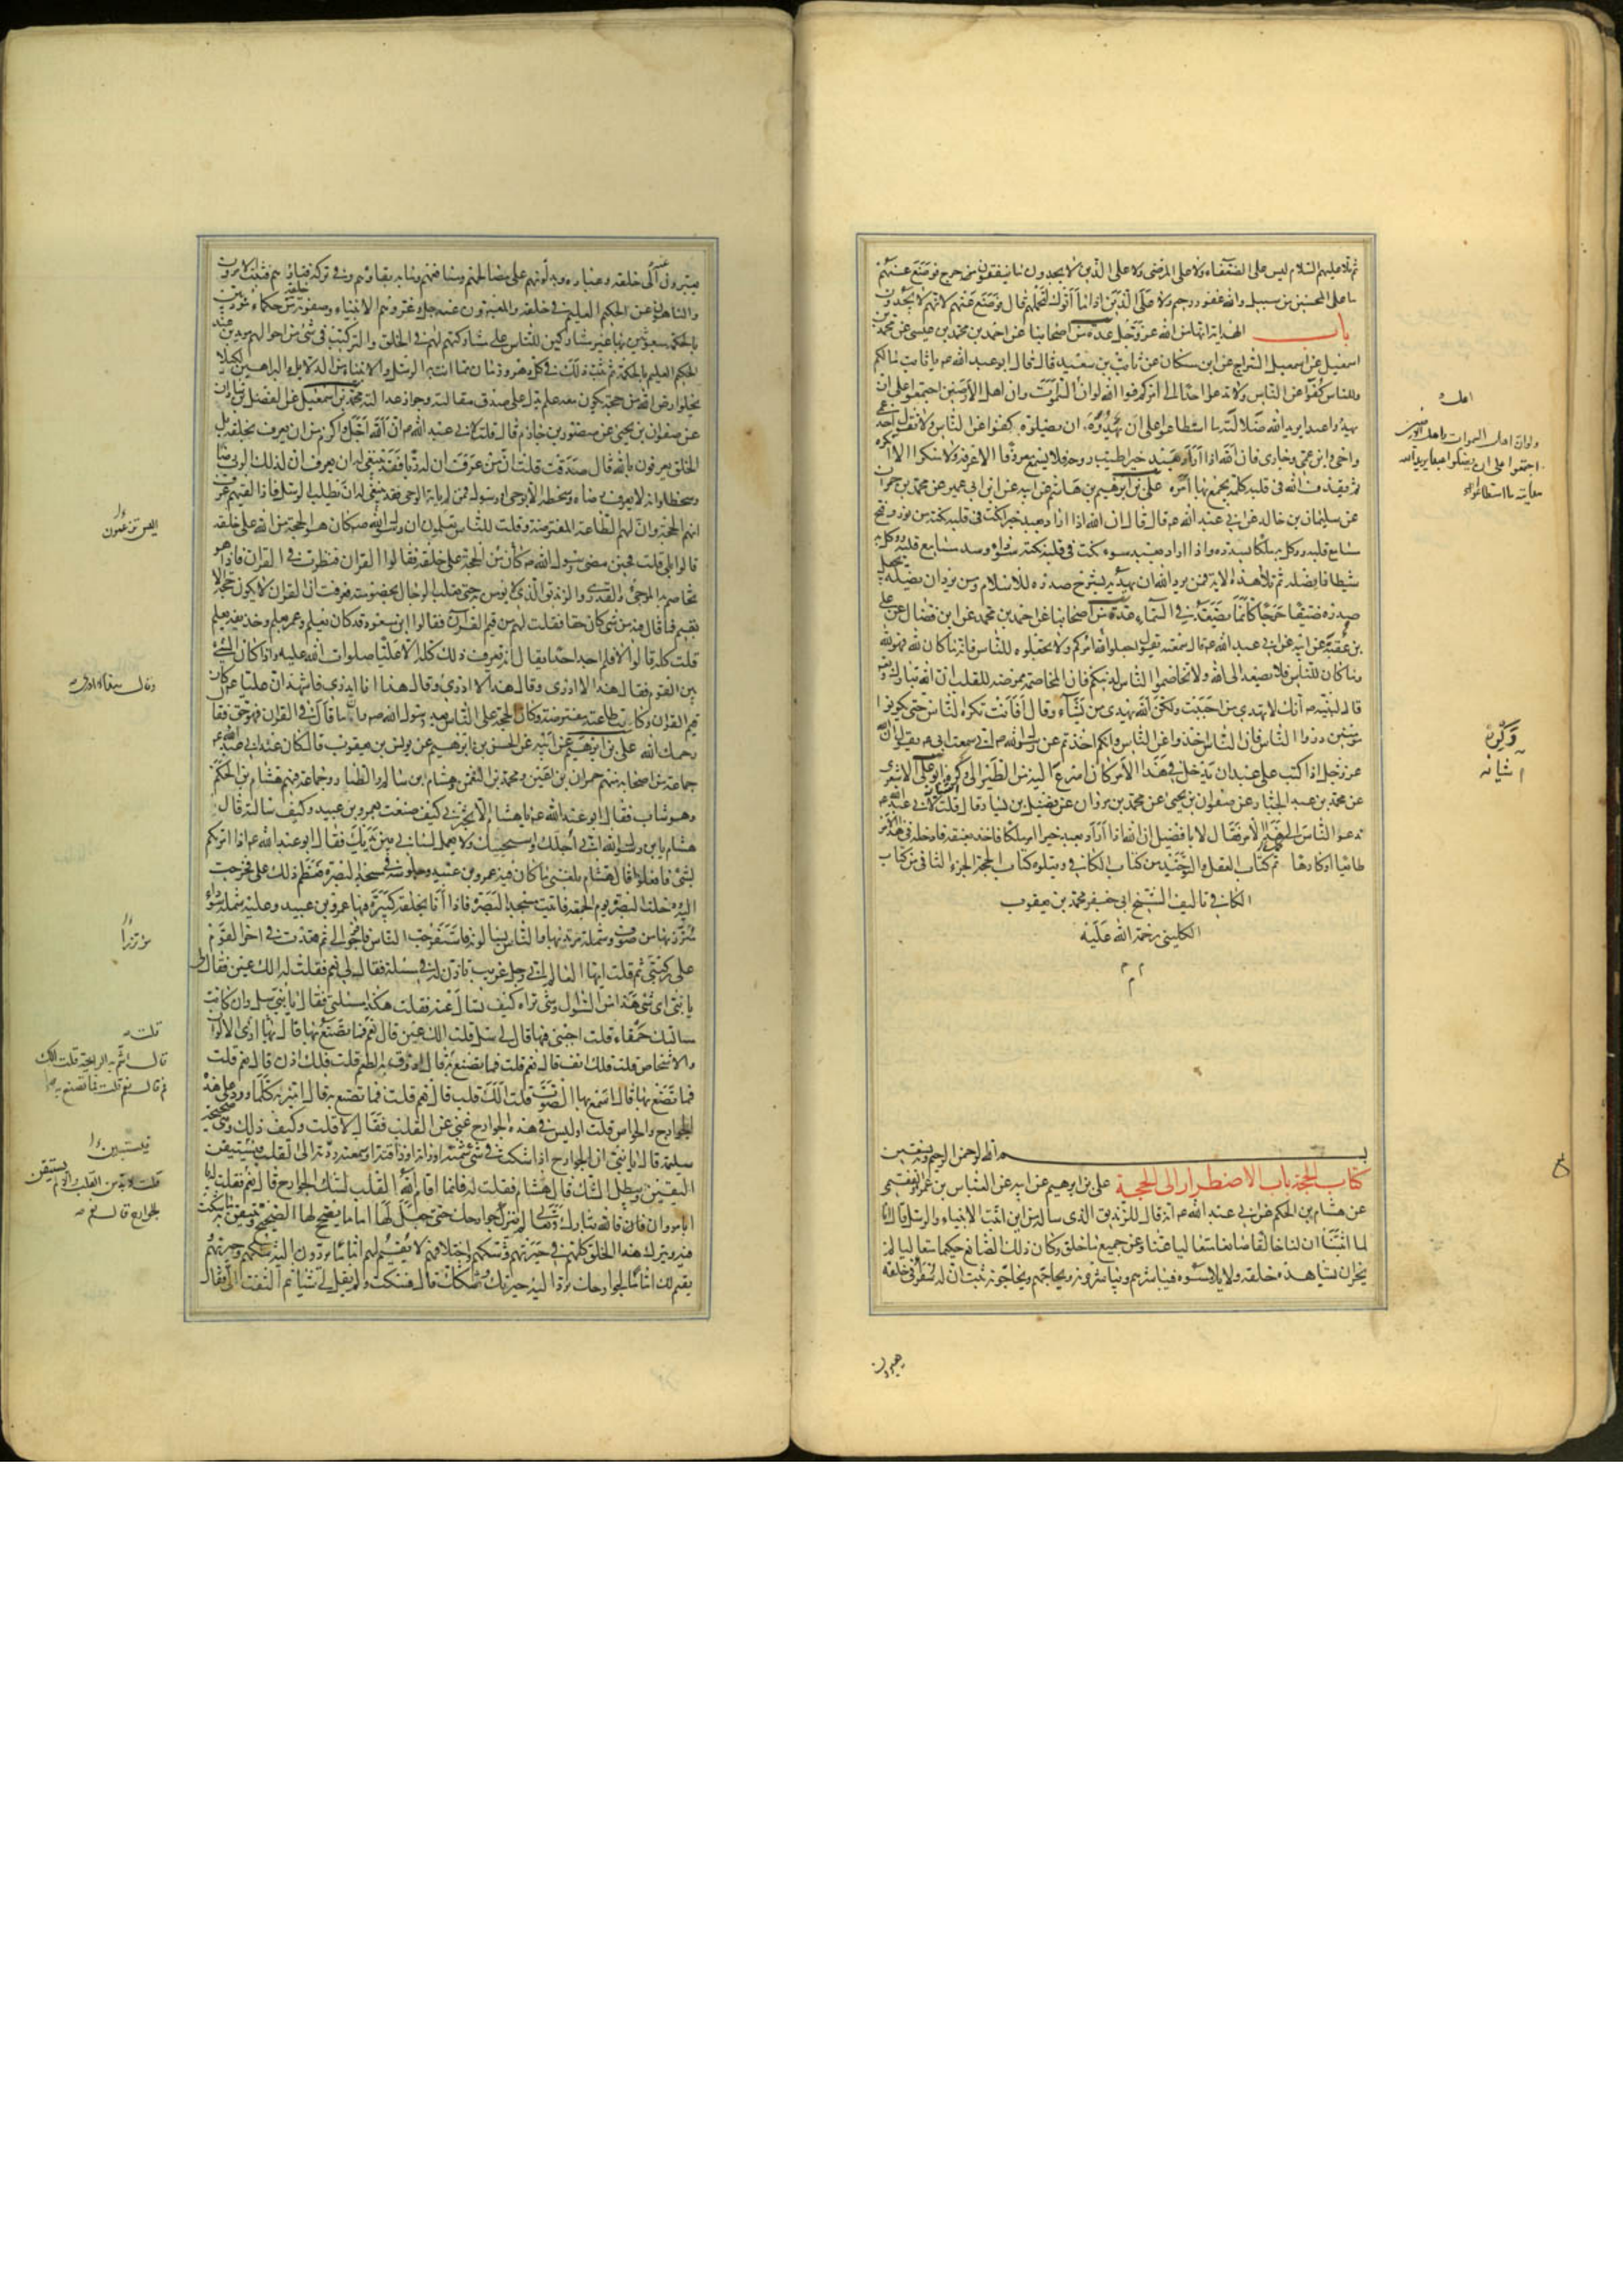 ثم تلا عليهم السلام ليس على الضعفاء ولا على المرضى ولا على الذين لا يجدون ما ينفقون حرج فوضع عنهم
ما على المحسنين من سبيل والله غفور رحيم ولا على الذين اذا ما اتوك لتحملهم قال فوضع عنهم لانهم لا يجدون
باب الهداية انها من الله عز وجل عدة من اصحابنا عن احمد بن محمد بن عيسى عن محمد بن
اسمعيل عن اسمعيل السراج عن ابن مسكان عن ثابت بن سعيد قال قال ابو عبد الله ع يا ثابت ما لكم
وللناس كفوا عن الناس ولا تدعوا احدا الى امركم فوالله لو ان اهل السموات وان اهل الارضين اجتمعوا على ان
يهدوا عبدا يريد الله ضلالته ما استطاعوا على ان يهدوه ان يضلوه كفوا عن الناس ولا تقول احد عمي
واخي وابن عمي وجاري فان الله اذا اراد بعبد خيرا طيب روحه فلا يسمع معروفا الا عرفه ولا منكرا الا انكره
ثم يقذف الله في قلبه كلمة يجمع بها امره علي بن ابرهيم بن هاشم عن ابيه عن ابن ابي عمير عن محمد بن حمران
عن سليمان بن خالد عن ابي عبد الله ع قال قال ان الله اذا اراد بعبد خيرا نكت في قلبه نكتة من نور وفتح
مسامع قلبه ووكل به ملكا يسدده واذا اراد بعبد سوء نكت في قلبه نكتة سوداء وسد مسامع قلبه ووكل به
شيطانا يضله ثم تلا هذه الاية فمن يرد الله ان يهديه يشرح صدره للاسلام ومن يرد ان يضله يجعل
صدره ضيقا حرجا كانما يصعد في السماء عدة من اصحابنا عن احمد بن محمد عن ابن فضال عن علي
بن عقبة عن ابيه عن ابي عبد الله ع قال سمعته يقول اجعلوا لله امركم ولا تجعلوه للناس فانه ما كان لله فهو لله
وما كان للناس فلا يصعد الى الله ولا تخاصموا الناس لدينكم فان المخاصمة ممرضة للقلب ان الله تبارك وتعالى
قال لنبيه ص انك لا تهدي من احببت ولكن الله يهدي من يشاء وقال افانت تكره الناس حتى يكونوا
مؤمنين ذروا الناس فان الناس اخذوا عن الناس وانكم اخذتم عن رسول الله ص اني سمعت ابي ع يقول ان الله
عز وجل اذا كتب على عبد ان يدخل في هذا الامر كان اسرع اليه من الطير الى وكره ابو علي الاشعري
عن محمد بن عبد الجبار عن صفوان بن يحيى عن محمد بن مروان عن فضيل بن يسار قال قلت لابي عبد الله ع
ندعوا الناس الى هذا الامر فقال لا يا فضيل ان الله اذا اراد بعبد خيرا امر ملكا فاخذ بعنقه فادخله في هذا الامر
طائعا او كارها تم كتاب العقل والتوحيد من كتاب الكافي ويتلوه كتاب الحجة الجزء الثاني من كتاب
الكافي تاليف الشيخ ابي جعفر محمد بن يعقوب
الكليني رحمة الله عليه
بسم الله الرحمن الرحيم وبه نستعين
كتاب الحجة باب الاضطرار الى الحجة علي بن ابرهيم عن ابيه عن العباس بن عمر الفقيمي
عن هشام بن الحكم عن ابي عبد الله ع انه قال للزنديق الذي ساله من اين اثبت الانبياء والرسل قال انا
لما اثبتنا ان لنا خالقا صانعا متعاليا عنا وعن جميع ما خلق وكان ذلك الصانع حكيما متعاليا لم
يجز ان يشاهده خلقه ولا يلامسوه فيباشرهم ويباشرونه ويحاجهم ويحاجونه ثبت ان له سفراء في خلقه
يعبرون
اهل
ولو ان اهل السموات واهل الارضين
اجتمعوا على ان يضلوا عبدا يريد الله
هدايته ما استطاعوا
وكره
آشيانه
يعبرون عنه الى خلقه وعباده ويدلونهم على مصالحهم ومنافعهم وما به بقاؤهم وفي تركه فناؤهم فثبت الامرون
والناهون عن الحكيم العليم في خلقه والمعبرون عنه جل وعز وهم الانبياء وصفوته من خلقه حكماء مؤدبين
بالحكمة مبعوثين بها غير مشاركين للناس على مشاركتهم لهم في الخلق والتركيب في شئ من احوالهم مؤيدين من عند
الحكيم العليم بالحكمة ثم ثبت ذلك في كل دهر وزمان مما اتت به الرسل والانبياء من الدلايل والبراهين لكيلا
تخلوا ارض الله من حجة يكون معه علم يدل على صدق مقالته وجواز عدالته محمد بن اسمعيل عن الفضل بن شاذان
عن صفوان بن يحيى عن منصور بن حازم قال قلت لابي عبد الله ع ان الله اجل واكرم من ان يعرف بخلقه بل
الخلق يعرفون بالله قال صدقت قلت ان من عرف ان له ربا فقد ينبغي له ان يعرف ان لذلك الرب رضا
وسخطا وانه لا يعرف رضاه وسخطه الا بوحي او رسول فمن لم ياته الوحي فقد ينبغي له ان يطلب الرسل فاذا لقيهم عرف
انهم الحجة وان لهم الطاعة المفترضة وقلت للناس تعلمون ان رسول الله ص كان هو الحجة من الله على خلقه
قالوا بلى قلت فحين مضى رسول الله ص من كان الحجة على خلقه فقالوا القران فنظرت في القران فاذا هو
يخاصم به المرجي والقدري والزنديق الذي لا يؤمن به حتى يغلب الرجال بخصومته فعرفت ان القران لا يكون حجة الا
بقيم فما قال فيه من شئ كان حقا فقلت لهم من قيم القران فقالوا ابن مسعود قد كان يعلم وعمر يعلم وحذيفة يعلم
قلت كله قالوا لا فلم اجد احدا يقال انه يعرف ذلك كله الا عليا صلوات الله عليه واذا كان الشئ
بين القوم فقال هذا لا ادري وقال هذا لا ادري وقال هذا انا ادري فاشهد ان عليا ع كان
قيم القران وكانت طاعته مفترضة وكان الحجة على الناس بعد رسول الله ص وان ما قال في القران فهو حق فقال
رحمك الله علي بن ابرهيم عن ابيه عن الحسن بن ابرهيم عن يونس بن يعقوب قال كان عند ابي عبد الله ع
جماعة من اصحابه منهم حمران بن اعين ومحمد بن النعمن وهشام ابن سالم والطيار وجماعة فيهم هشام بن الحكم
وهو شاب فقال ابو عبد الله ع يا هشام الا تخبرني كيف صنعت بعمرو بن عبيد وكيف سالته قال
هشام يا بن رسول الله اني اجلك واستحييك ولا يعمل لساني بين يديك فقال ابو عبد الله ع اذا امرتكم
بشئ فافعلوا قال هشام بلغني ما كان فيه عمرو بن عبيد وجلوسه في مسجد البصرة فعظم ذلك علي فخرجت
اليه ودخلت البصرة يوم الجمعة فاتيت مسجد البصرة فاذا انا بحلقة كبيرة فيها عمرو بن عبيد وعليه شملة سوداء
متزر بها من صوف وشملة مرتد بها والناس يسالونه فاستفرجت الناس فافرجوا لي ثم قعدت في اخر القوم
على ركبتي ثم قلت ايها العالم اني رجل غريب تاذن لي في مسئلة فقال لي نعم فقلت له الك عين فقال لي
يا بني اي شئ هذا من السؤال وشئ تراه كيف تسال عنه فقلت هكذا مسئلتي فقال يا بني سل وان كانت
مسالتك حمقاء قلت اجبني فيها قال لي سل قلت الك عين قال نعم فما تصنع بها قال بها ارى الالوان
والاشخاص قلت فلك انف قال نعم قلت فما تصنع به قال اذوق به الطعم قلت فلك اذن قال نعم قلت
فما تصنع بها قال اسمع بها الصوت قلت الك قلب قال نعم قلت فما تصنع به قال اميز به كلما ورد على هذه
الجوارح والحواس قلت اوليس في هذه الجوارح غنى عن القلب فقال لا قلت وكيف ذلك وهي صحيحة
سليمة قال يا بني ان الجوارح اذا شكت في شئ شمته او راته او ذاقته او سمعته ردته الى القلب فيستيقن
اليقين ويبطل الشك قال هشام فقلت له فانما اقام الله القلب لشك الجوارح قال نعم فقلت له يا
ابا مروان فان الله تبارك وتعالى لم يترك جوارحك حتى جعل لها اماما يصحح لها الصحيح ويتيقن به ما شكت
فيه ويترك هذا الخلق كلهم في حيرتهم وشكهم واختلافهم لا يقيم لهم اماما يردون اليه شكهم وحيرتهم
يقيم لك اماما لجوارحك ترد اليه حيرتك وشكك قال فسكت ولم يقل لي شيئا ثم التفت الي فقال
اليس تزعمون
وقال
مؤتزرا
قلت
قال اشم به الرايحة قلت الك
فم قال نعم قلت فما تصنع به
فيستبين
قلت لابد من القلب والا لم يستيقن
الجوارح قال نعم